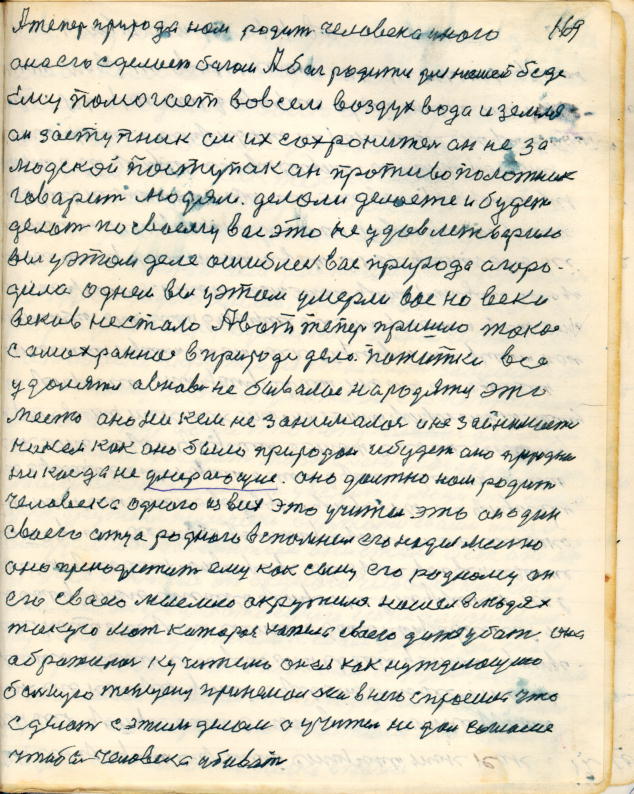 169
А тепер природа нам родит человека иного
она его сделает богом А бог родити для нашей беде
Ему помогает вовсем воздух вода и земля
он заступник он их сохронител он не за
людской поступак он противоположник
говарит людям. делали делаете и будете
делат по своему вас это не удовлетварило
вы уэтом деле ошиблис вас природа агаро-
дила однем вы уэтом умерли вас на веки
веков нестало А вот тепер пришло такое
самахранное в природе дело. пажитки все
удолятя авновь не бывалое народятя это
место оно ни кем не занималос и не займится
никем как оно было природои ибудет оно природои
никогда не умерающие. оно должно нам родит
человека одного из всех это учител это он один
своего отца родного вспомнил его нашел место
оно принодлежит ему как сыну его родному он
его своею мыслию окружил. нашел в людях
такую мат каторая хотела своего дитя убит. она
абратилас ку учителю он ея как нуждающию
болную принемал она в него спросила что
сделат с этим делом а учител не дал согласие
чтобы человека убиват